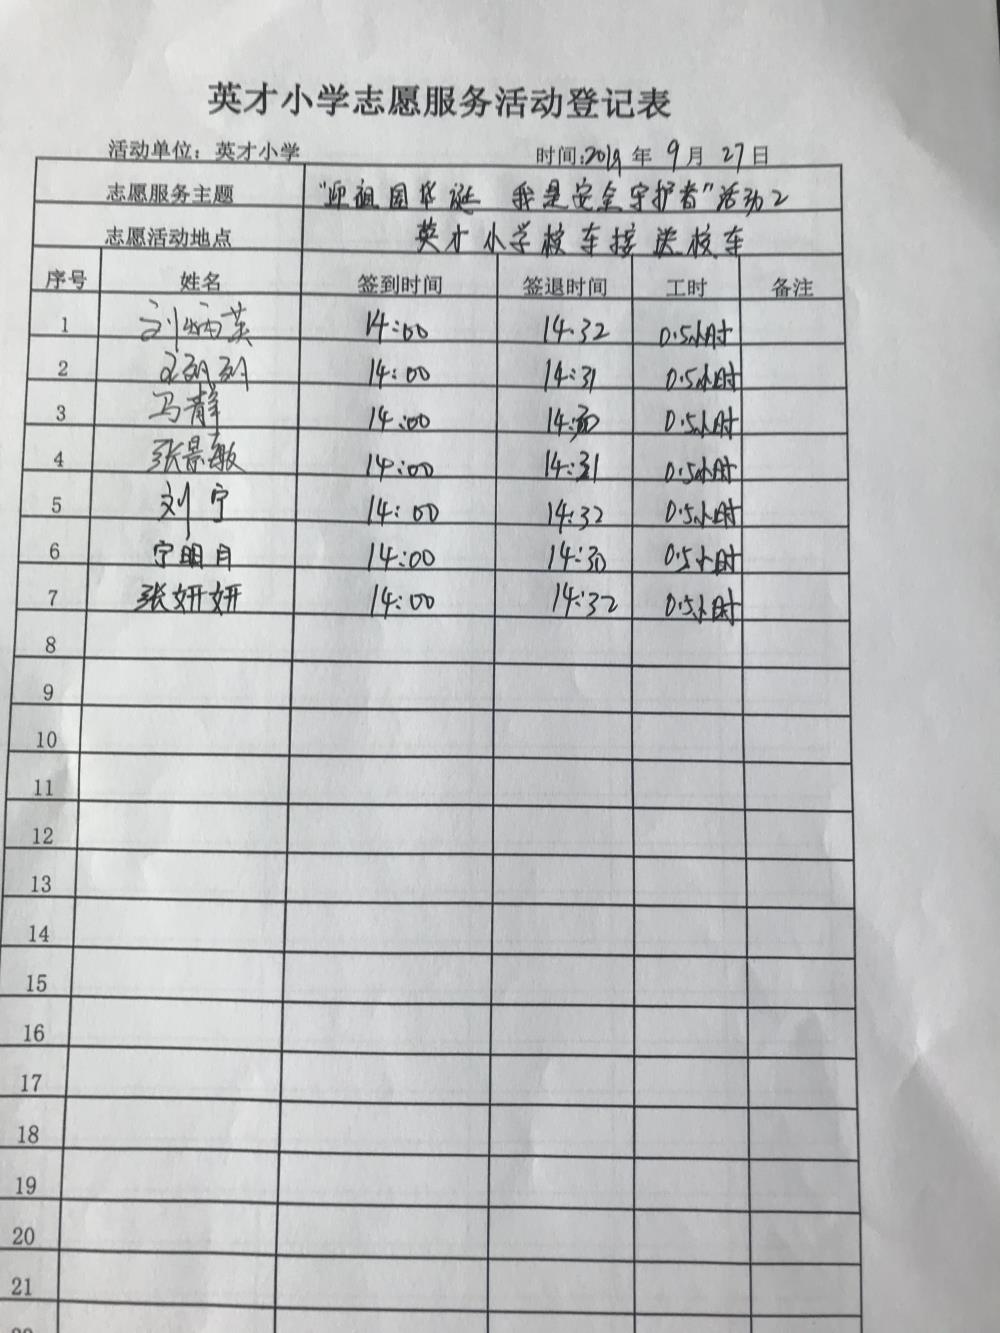 英才小学志愿服务活动登记表
活动单位：英才小学 时间:2019年 9月 27日
志愿服务主题 "迎祖国华诞 我是安全守护者"活动2
志愿活动地点 英才小学校车接送校车
序号 姓名 签到时间 签退时间 工时 备注
1 刘炳英 14:00 14:32 0.5小时
2 14:00 14:31 0.5小时
3 马静 14:00 14:30 0.5小时
4 张景敏 14:00 14:31 0.5小时
5 刘宁 14:00 14:32 0.5小时
6 宁明月 14:00 14:30 0.5小时
7 张妍妍 14:00 14:32 0.5小时
8
9
10
11
12
13
14
15
16
17
18
19
20
21